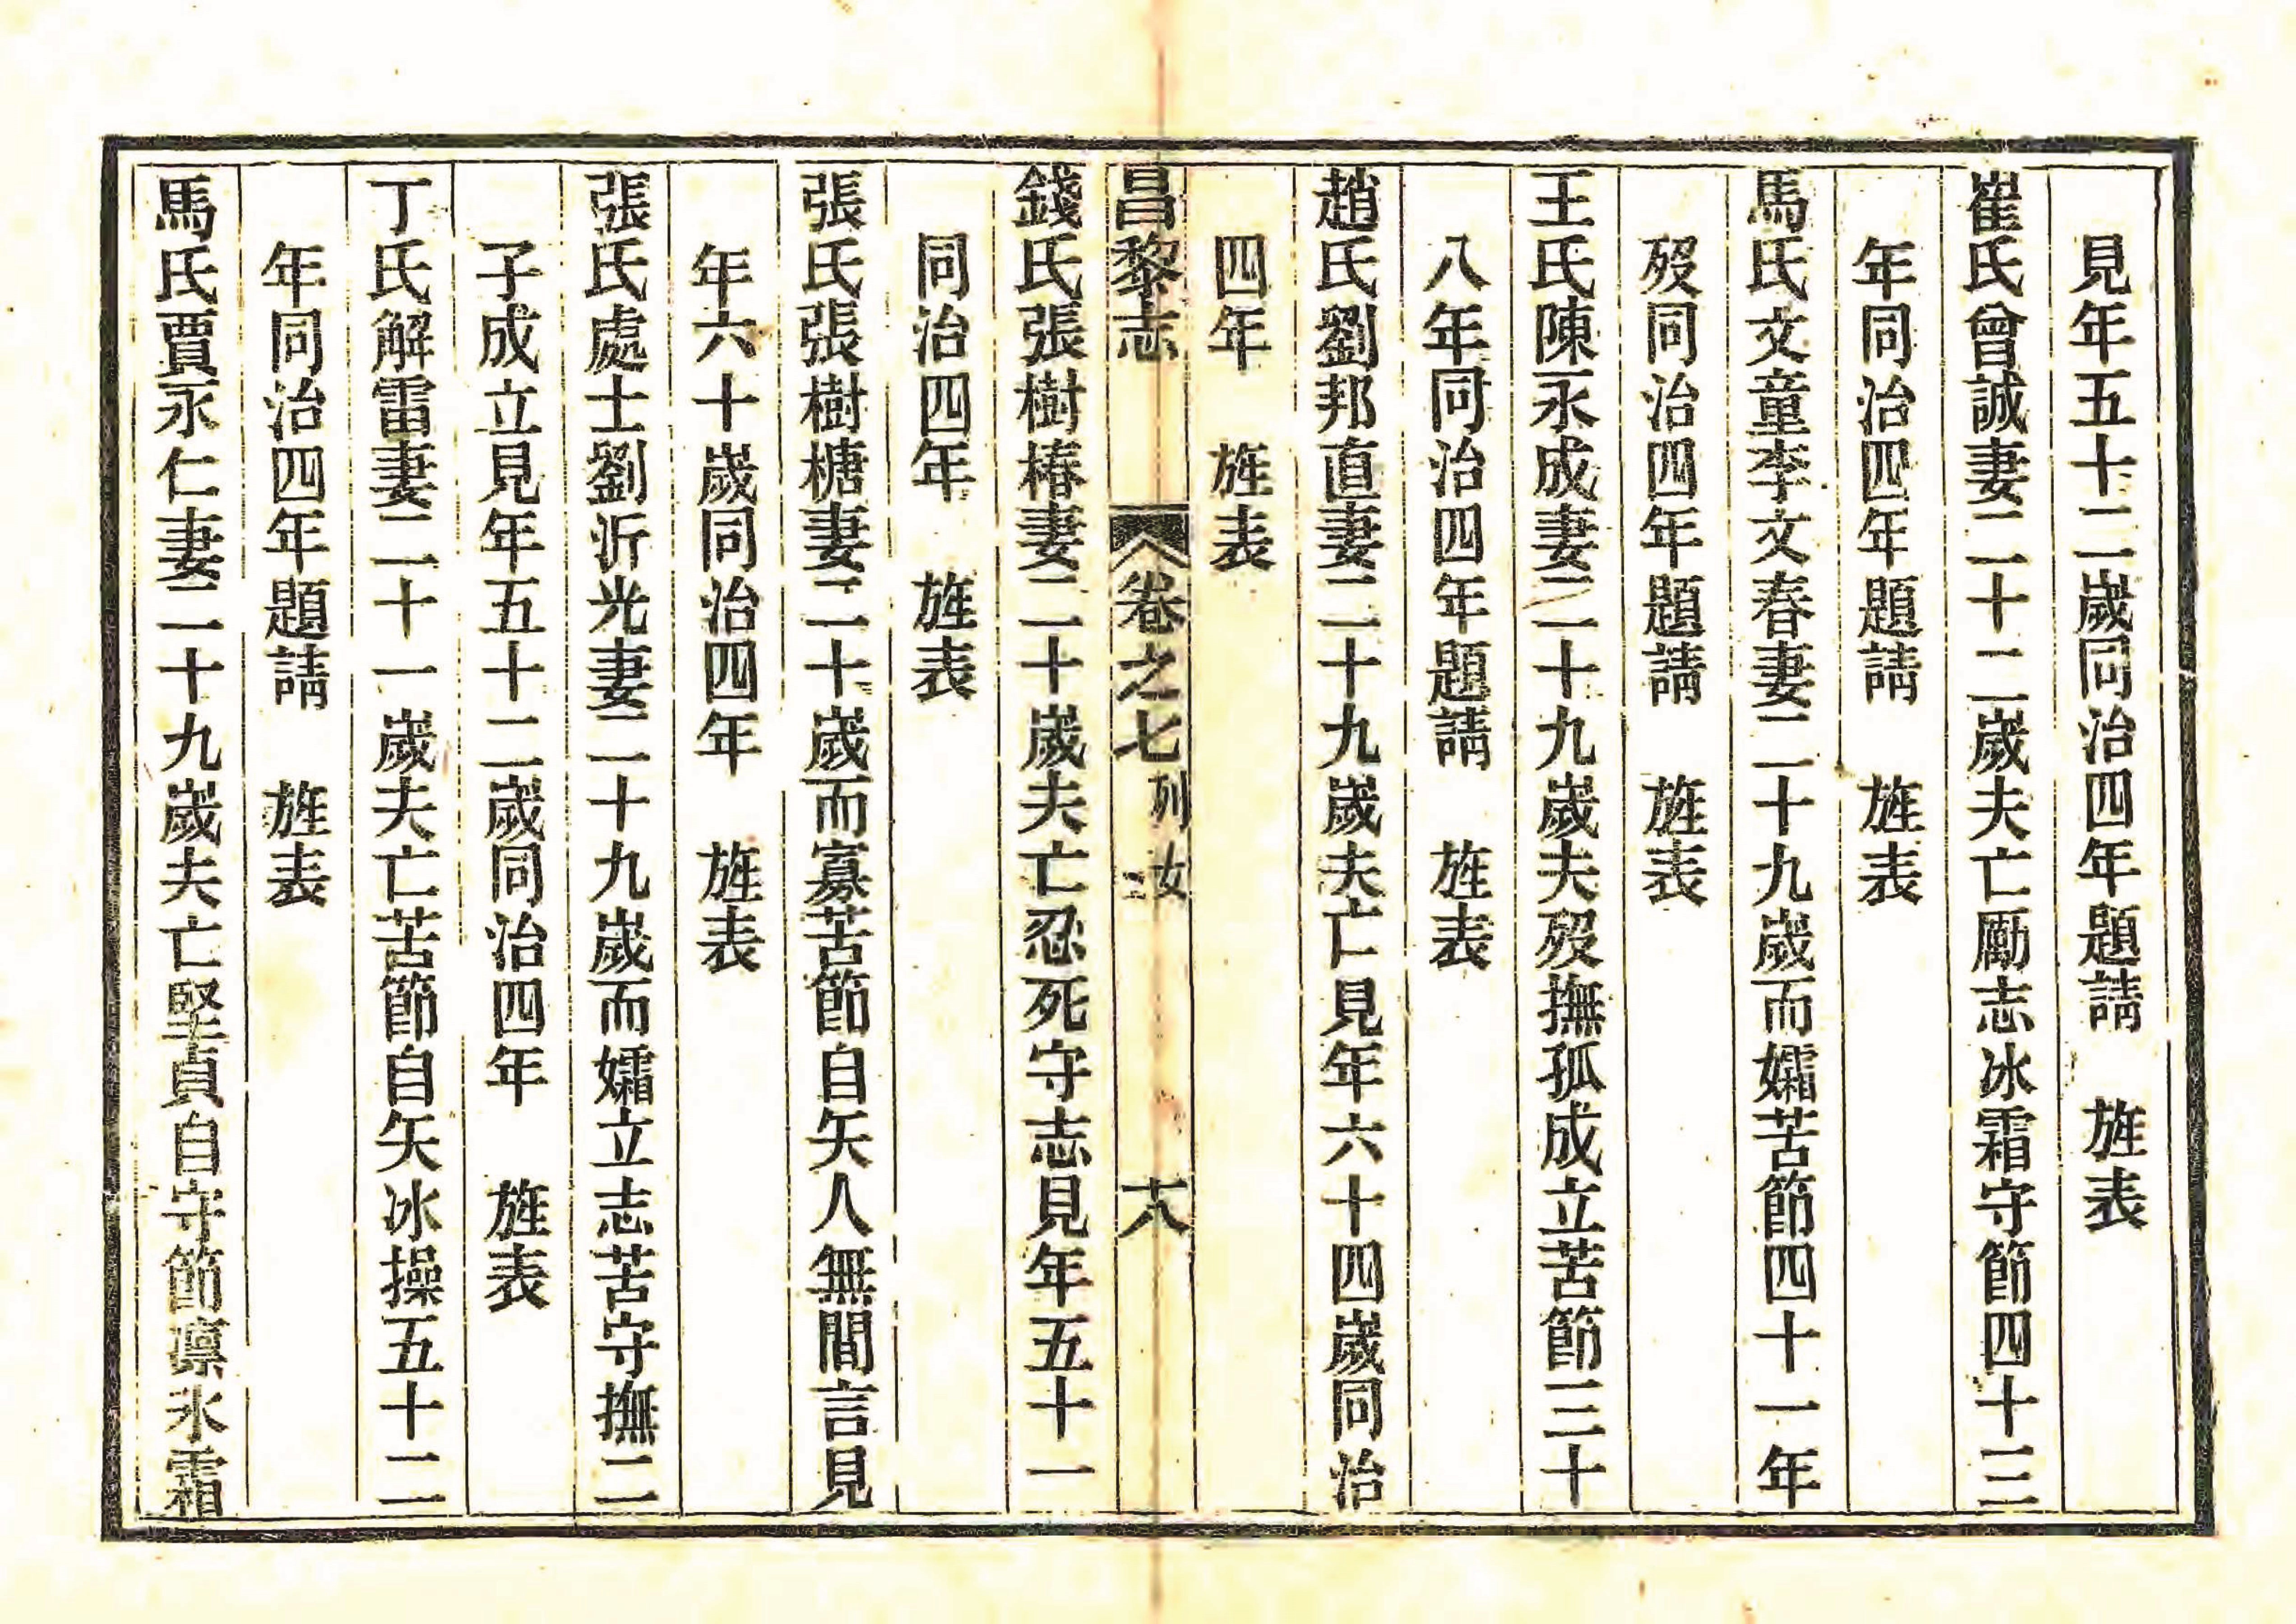 見年五十二歲同治四年題請　旌表
崔氏曾誠妻二十二歲夫亡勵志冰霜守節四十三
年同治四年題請　旌表
馬氏文童李文春妻二十九歲而孀苦節四十一年
歿同治四年題請　旌表
王氏陳永成妻二十九歲夫歿撫孤成立苦節三十
八年同治四年題請　旌表
趙氏劉邦直妻二十九歲夫亡見年六十四歲同治
四年　旌表
昌黎志　卷之七　列女二　十八
錢氏張樹椿妻二十歲夫亡忍死守志見年五十一
同治四年　旌表
張氏張樹榶妻二十歲而寡苦節自矢人無間言見
年六十歲同治四年　旌表
張氏處士劉沂光妻二十九歲而孀立志苦守撫二
子成立見年五十二歲同治四年　旌表
丁氏解雷妻二十一歲夫亡苦節自矢冰操五十二
年同治四年題請　旌表
馬氏賈永仁妻二十九歲夫亡堅貞自守節凛氷霜